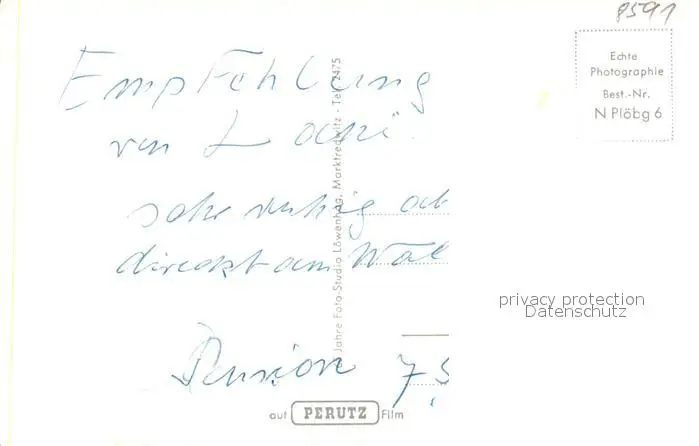 8591
Echte
Photographie
Best.-Nr.
N Plöbg 6
Empfehlung
von
sehr ruhig
direkt am Wal
Pension 7
Jahre Foto-Studio Löwenhag, Marktredwitz · Tel. 2475
auf PERUTZ Film
privacy protection
Datenschutz